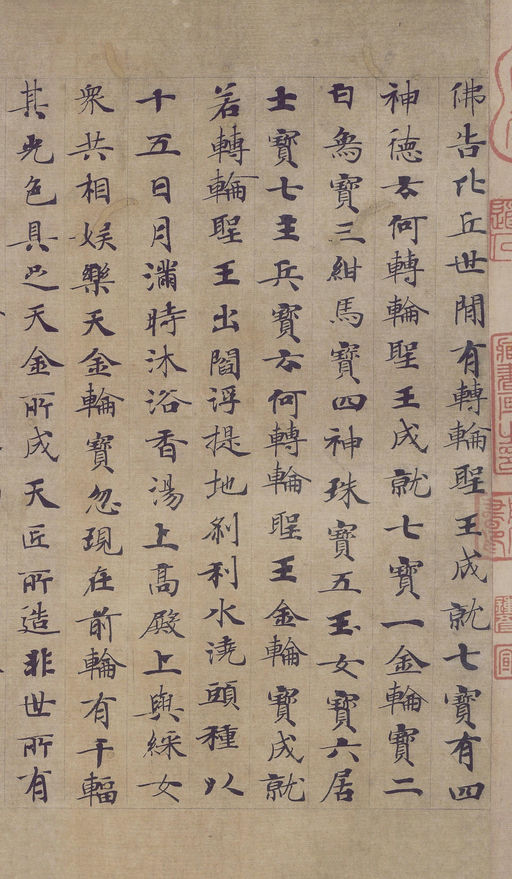 佛告比丘世閒有轉輪聖王成就七寶有四
神德云何轉輪聖王成就七寶一金輪寶二
白象寶三紺馬寶四神珠寶五玉女寶六居
士寶七主兵寶云何轉輪聖王金輪寶成就
若轉輪聖王出閻浮提地刹利水澆頭種以
十五日月滿時沐浴香湯上高殿上與綵女
衆共相娛樂天金輪寶忽現在前輪有千輻
其光色具足天金所成天匠所造非世所有